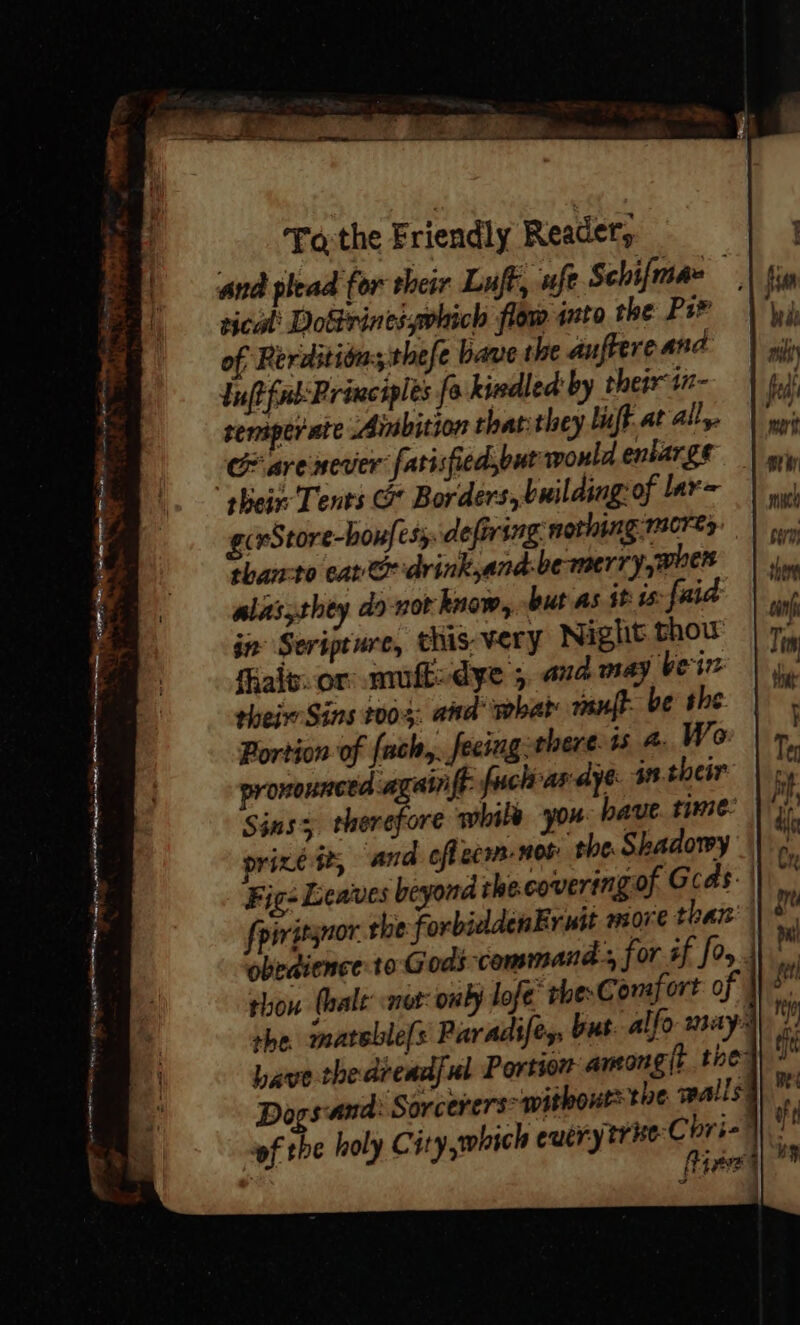 To the Friendly Reader,
and plead for their Luſt, uſe Schiſma-
tical Doctrines, which flow into the Pit
of Perdition; theſe have the auſtere and
luſtful Principles ſo kindled by their in-
temperate Ambition that they luſt at all,
& are never ſatisfied, but would enlarge
their Tents & Borders, building of lar-
ger Store-houſes, deſiring nothing more,
than to eat & drink, and be merry, when
alas, they do not know, but as it is ſaid
in Scripture, this very Night thou
ſhalt or muſt dye; and may be in
their Sins too; and what muſt be the
Portion of ſuch, ſeeing there is a Wo
pronounced againſt ſuch as dye in their
Sins; therefore while you have time
prize it, and eſteem not the Shadowy
Fig-Leaves beyond the covering of Gods
ſpirit, nor the forbidden Fruit more than
obedience to Gods command; for if ſo,
thou ſhalt not only loſe the Comfort of
the matchleſs Paradiſe, but alſo may
have the dreadful Portion amongſt the
Dogs and Sorcerers without the walls
of the holy City, which every true Chri-
ſtian